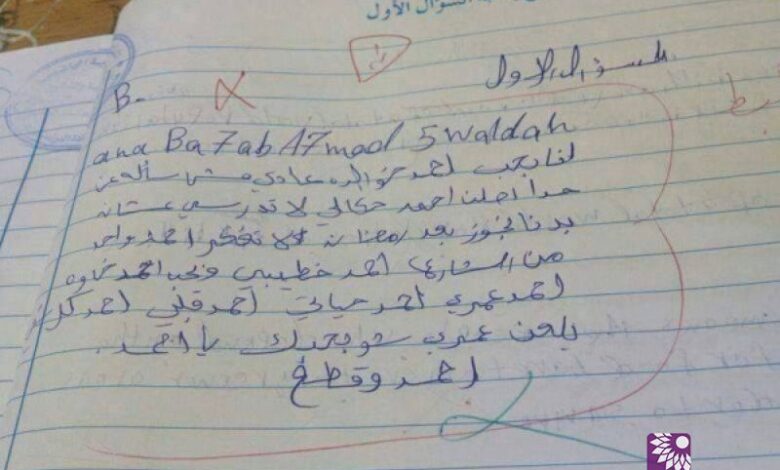 السؤال الأول
السؤال الاول
B-
ana Ba7ab A7mad 5 waldah
انا بحب احمد خوالده عادي مش سأله عن
حدا اصلن احمد حكالي لا تدرسي عشان
بدنا نجوز بعد رمضان فلا تفكر احمد واحد
من الشارع احمد خطيبي وبحب احمد
احمد عمري احمد حياتي احمد قلبي احمد
يلعن عمري شو بحبك يا احمد
احمد وقطع